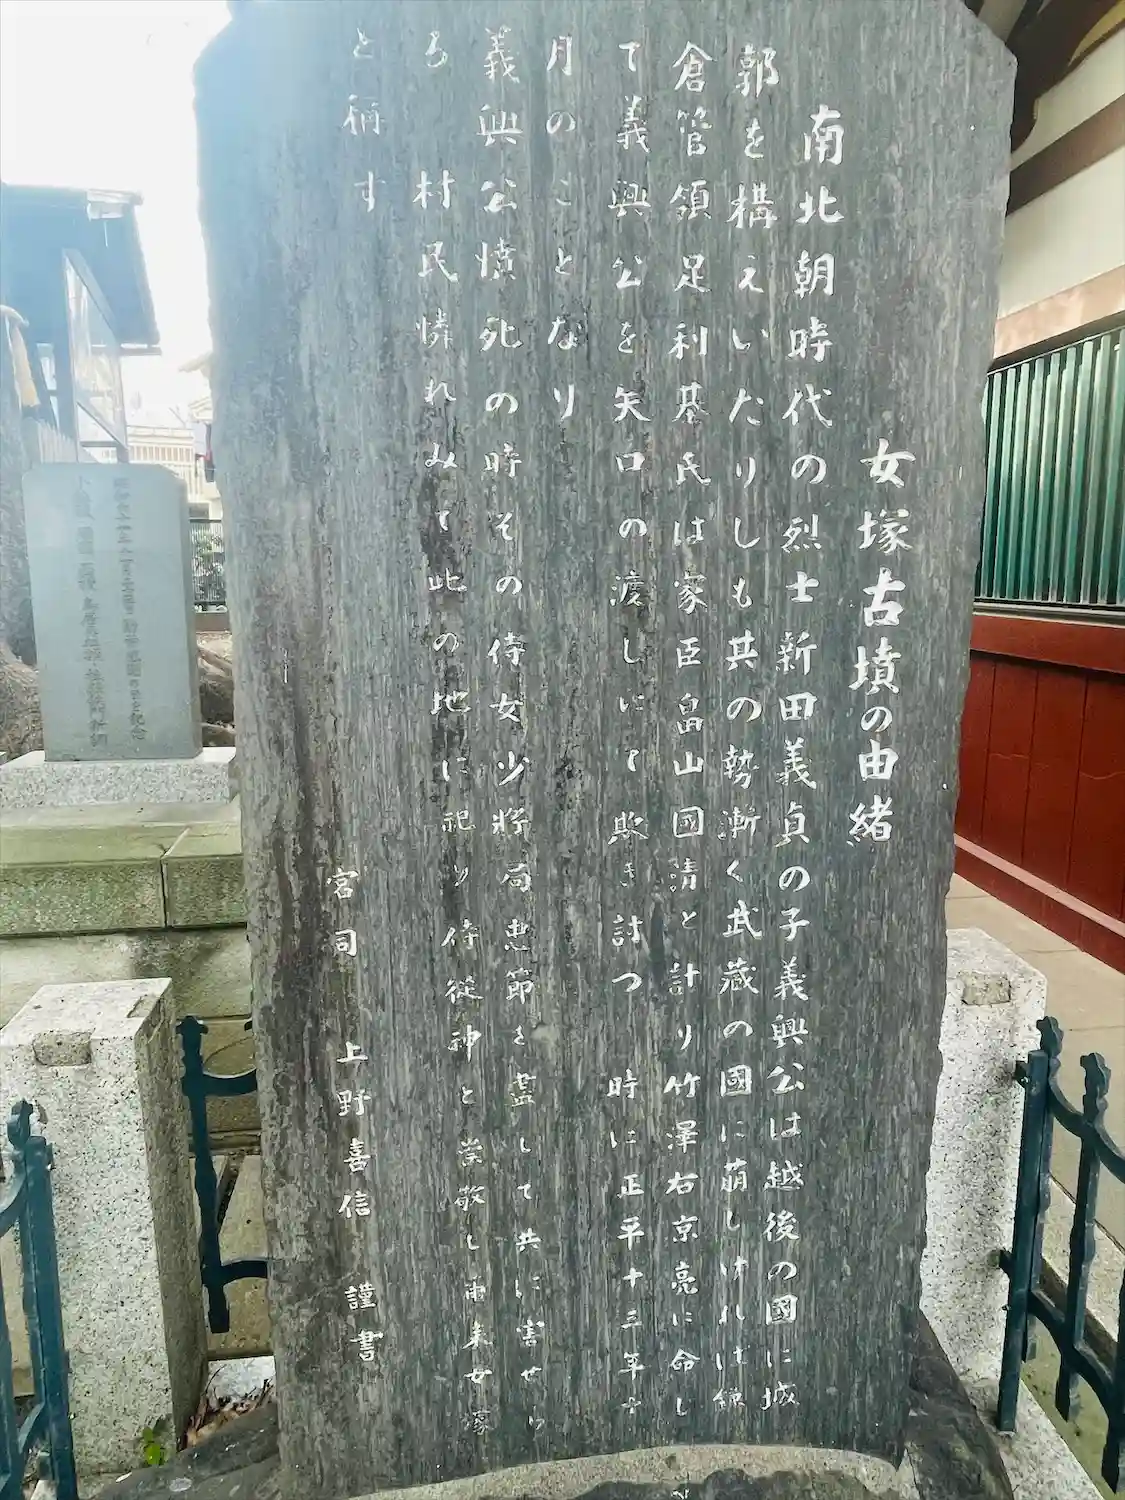 女塚古墳の由緒
南北朝時代の烈士新田義貞の子義興公は越後の國に城
郭を構えいたりしも其の勢漸く武藏の國に萌しければ鎌
倉管領足利基氏は家臣畠山國淸と計り竹澤右京亮に命し
て義興公を矢口の渡しにて欺き討つ 時に正平十三年十
月のことなり
義興公憤死の時その侍女少将局忠節を盡して共に害せら
る 村民憐れみて此の地に祀り侍從神と崇敬し爾来女塚
と稱す
宮司 上野喜信 謹書